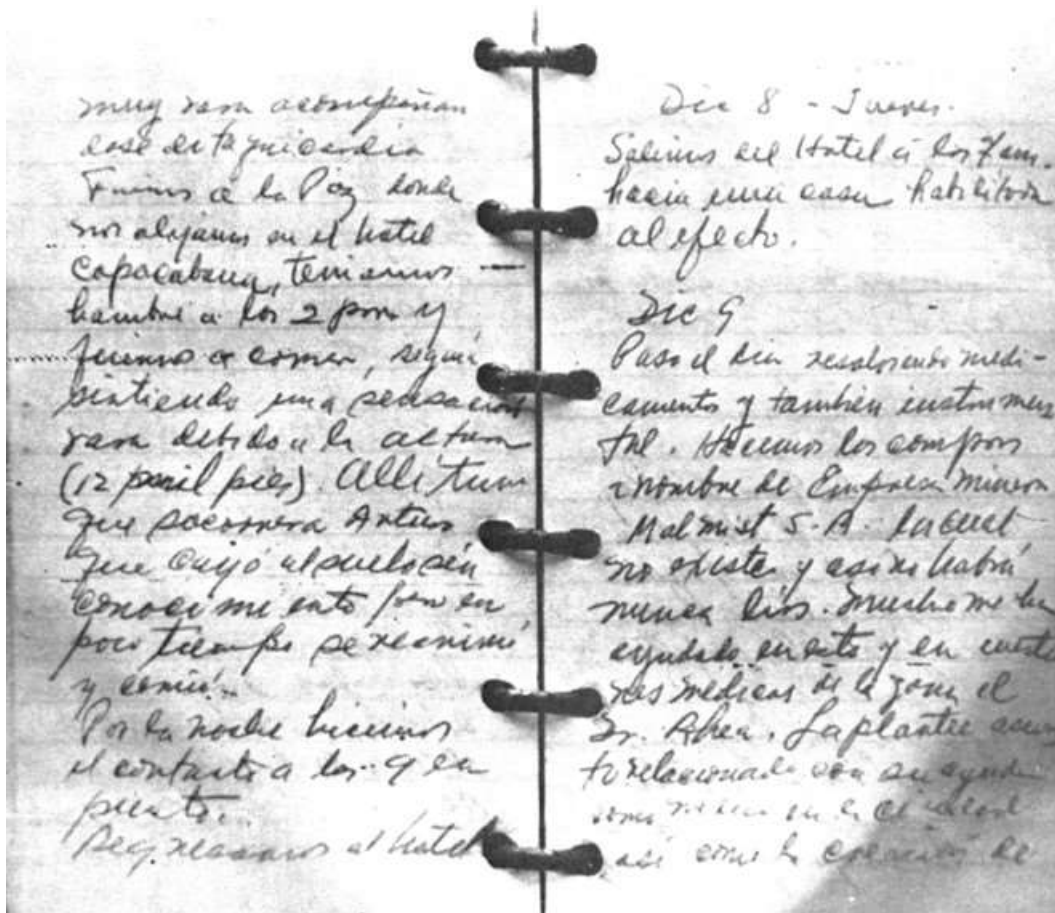 muy rara acompañan
dose de taquicardia
Fuimos a la Paz donde
nos alojamos en el hotel
Copacabana, teniamos
hambre a las 2 pm y
fuimos a comer, seguí
sintiendo una sensación
rara debido a la altura
(12 mil pies). Alli tuve
que socorrer a Arturo
que cayó al suelo sin
conocimiento pero en
poco tiempo se reanimó
y comió.
Por la noche hicimos
el contacto a las 9 en
punto.
Regresamos al hotel
Dic 8 - Jueves.
Salimos del Hotel a las 7 am.
hacia una casa habilitada
al efecto.
Dic 9
Paso el dia resolviendo medi-
camentos y tambien instrumen
tal. Hacemos las compras
a nombre de Empresa Minera
S.A. la cual
no existe y asi no habrá
nunca lios. Mucho me ha
ayudado en esto y en cuestio
nes medicas de la zona el
Dr. Rhea. La plantee
relacionado con su ayuda
como en la ciudad
asi como la de